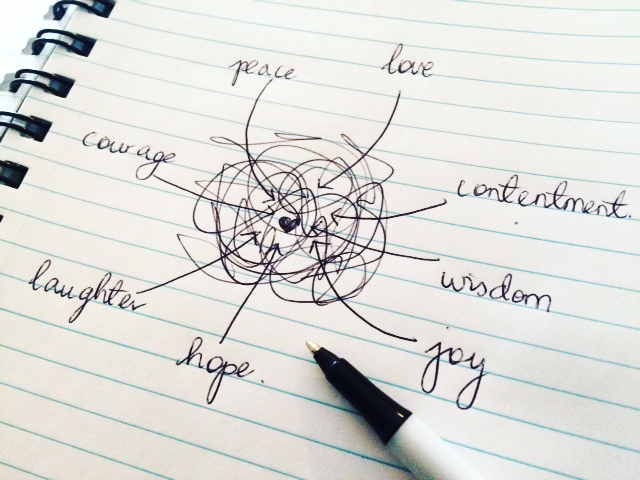 peace
love
courage
contentment.
laughter
wisdom
hope.
joy